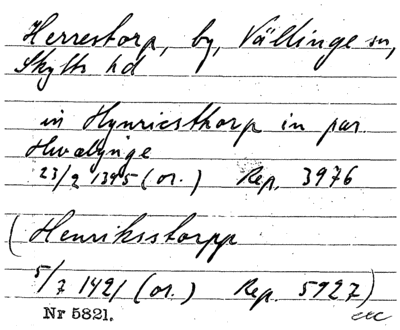 Herrestorp, by, Vällinge sn,
Skytts hd
in Hynricsthorp in par.
Hwælynge
23/2 1395 (or.) Rep. 3976
(Henriksstorpp
5/7 1421 (or.) Rep. 5927)
Nr 5821.